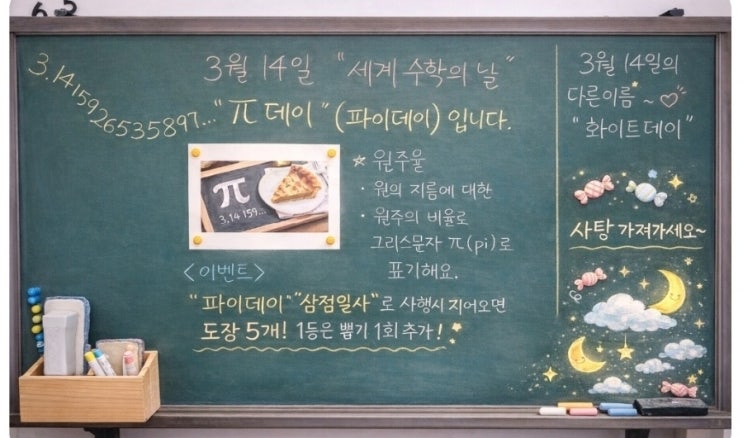 3.14159265358 97...
3월 14일 "세계 수학의 날"
"π데이" (파이데이) 입니다.
π
3.14 159...
☆ 원주율
· 원의 지름에 대한
· 원주의 비율로
그리스문자 π(pi)로
표기해요.
<이벤트>
"파이데이" "삼점일사"로 사행시 지어오면
도장 5개! 1등은 뽑기 1회 추가!
3월 14일의
다른이름 ~ ♡
"화이트데이"
사탕 가져가세요~